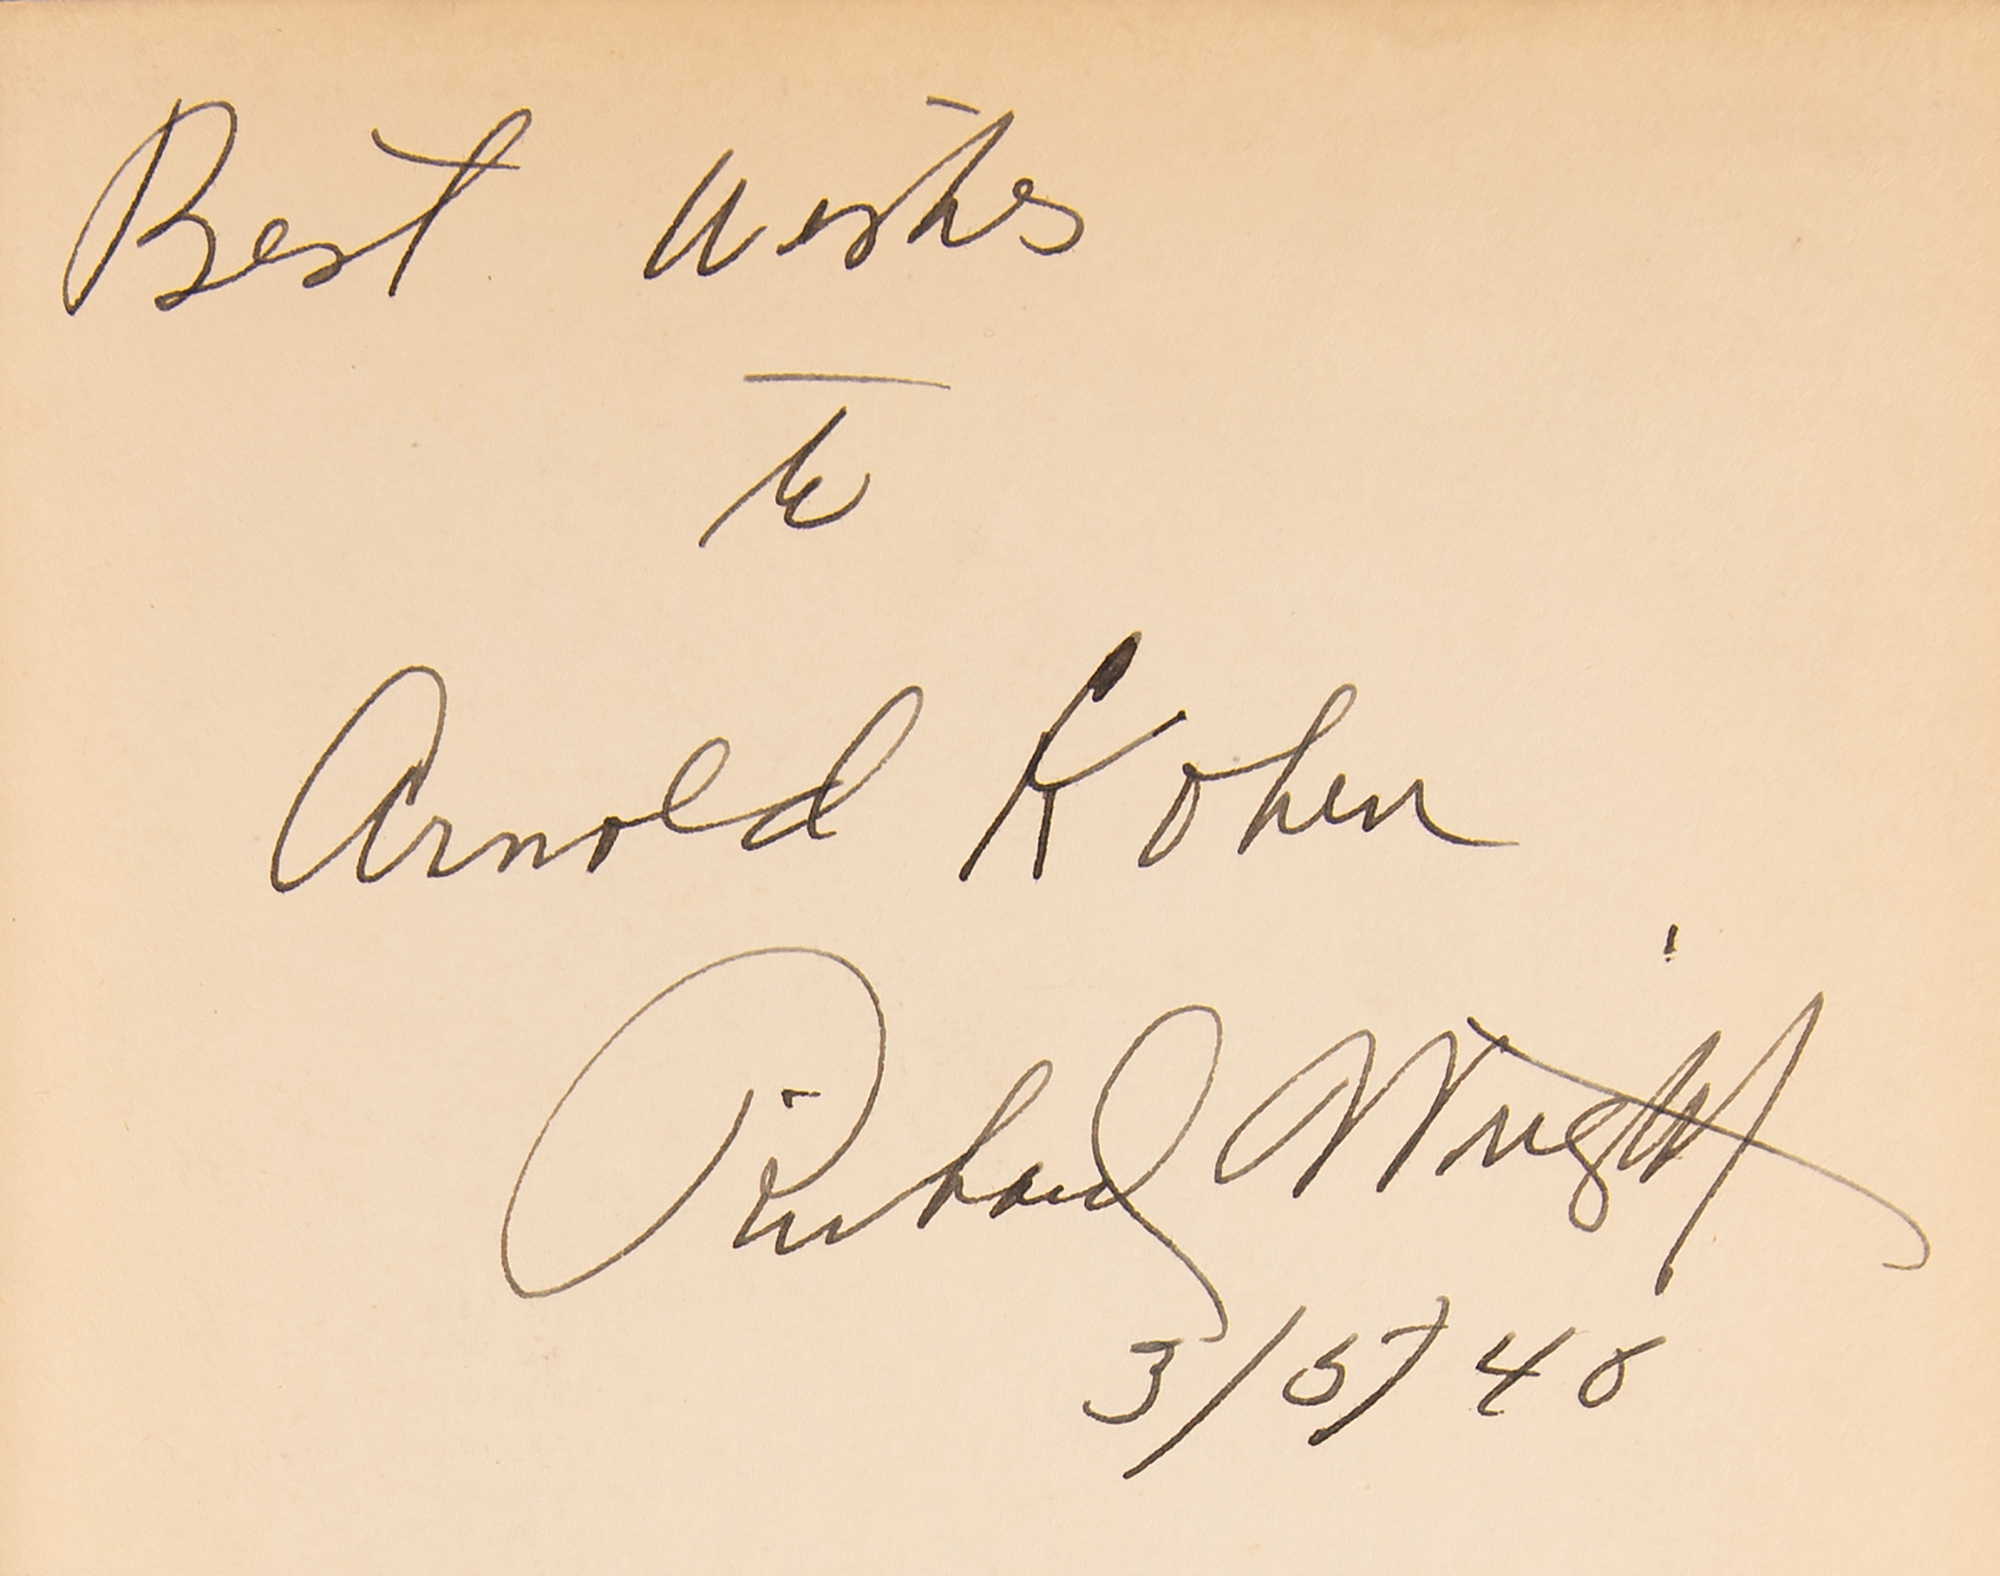 Best wishes
to
Arnold Kohen
Richard Wright
3/5/40